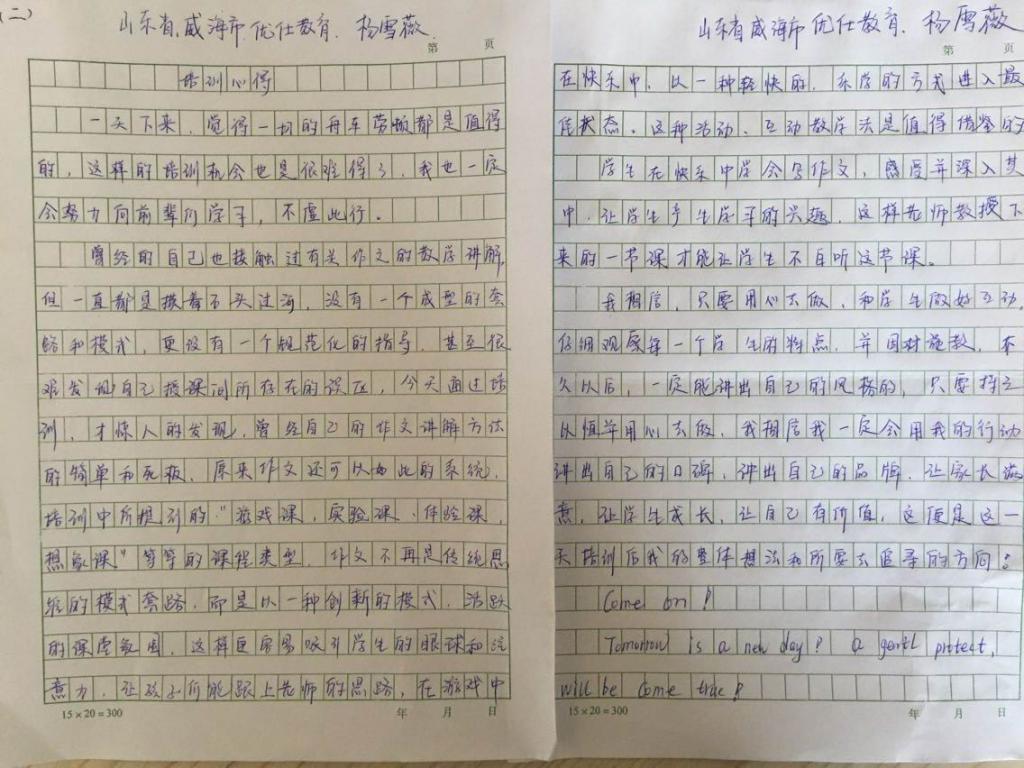 (二)
山东省威海市优仕教育 杨雪薇
第 页
培训心得
一天下来,觉得一切的舟车劳顿都是值得
的,这样的培训机会也是很难得了,我也一定
会努力向前辈们学习,不虚此行。
曾经的自己也接触过有关作文的教学讲解,
但一直都是摸着石头过河,没有一个成型的套
路和模式,更没有一个规范化的指导,甚至很
难发现自己授课间所存在的误区,今天通过培
训,才惊人的发现,曾经自己的作文讲解方法
的简单和死板,原来作文还可以如此的系统,
培训中所提到的"游戏课,实验课、体验课,
想象课"等等的课程类型,作文不再是传统思
维的模式套路,而是以一种创新的模式,活跃
的课堂氛围,这样更容易吸引学生的眼球和注
意力,让孩子们能跟上老师的思路,在游戏中
15×20=300 年 月 日
山东省威海市优仕教育 杨雪薇
第 页
在快乐中,以一种轻快的,乐学的方式进入最
佳状态。这种活动、互动教学法是值得借鉴的
学生在快乐中学会写作文,感受并深入其
中,让学生产生学习的兴趣,这样老师教授下
来的一节课才能让学生不白听这节课。
我相信,只要用心去做,和学生做好互动,
仔细观察每一个学生的特点,并因材施教,不
久以后,一定能讲出自己的风格的,只要持之
以恒并用心去做,我相信我一定会用我的行动
讲出自己的口碑,讲出自己的品牌,让家长满
意,让学生成长,让自己有价值,这便是这一
天培训后我的整体想法和所要去追寻的方向:
Come on!
Tomorrow is a new day! a gentl protect,
will be come true!
15×20=300 年 月 日